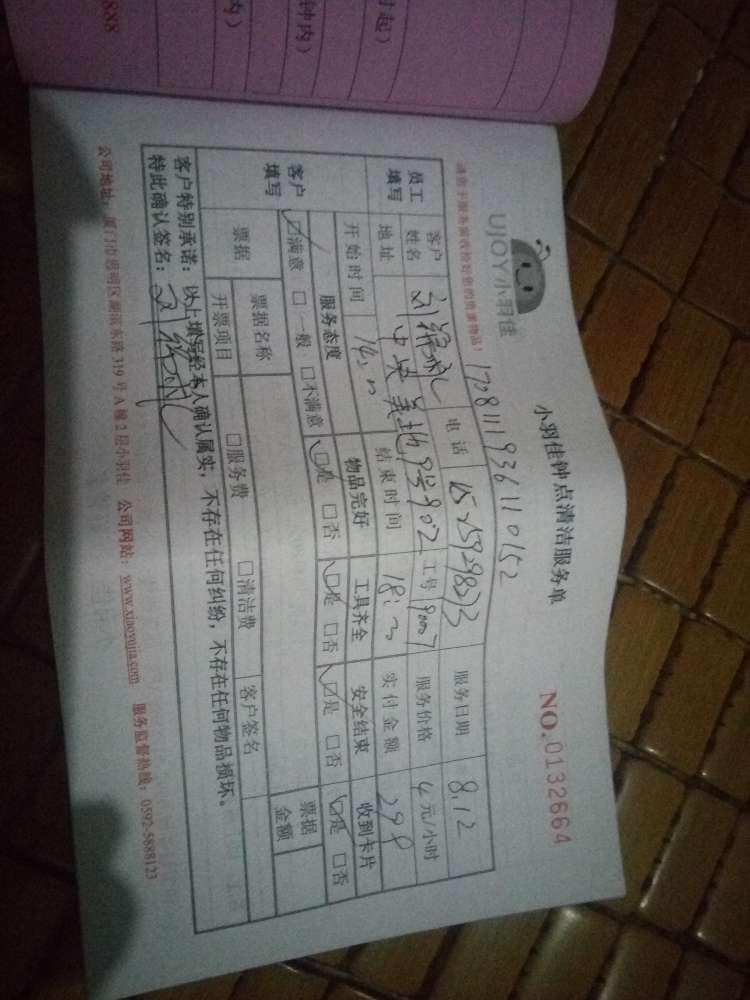 888
内)
钟内)
时起)
UJOY小羽佳
小羽佳钟点清洁服务单
NO.0132664
1708111936110152
员工填写
客户姓名
电话
服务日期 8.12
地址
工号 90007
服务价格 元/小时
开始时间
结束时间 18:
实付金额 298
客户填写
服务态度 物品完好 工具齐全 安全结束 收到卡片
☑满意 □一般 □不满意 ☑是 □否 ☑是 □否 ☑是 □否 ☑是 □否
票据
票据名称
票据金额
开票项目 □服务费 □清洁费 客户签名
客户特别承诺：以上填写经本人确认属实，不存在任何纠纷，不存在任何物品损坏。
特此确认签名：
公司地址：厦门市思明区莲滨东路319号A幢2层小羽佳 公司网站：www.xiaoyujia.com 服务监督热线：0592-5888123